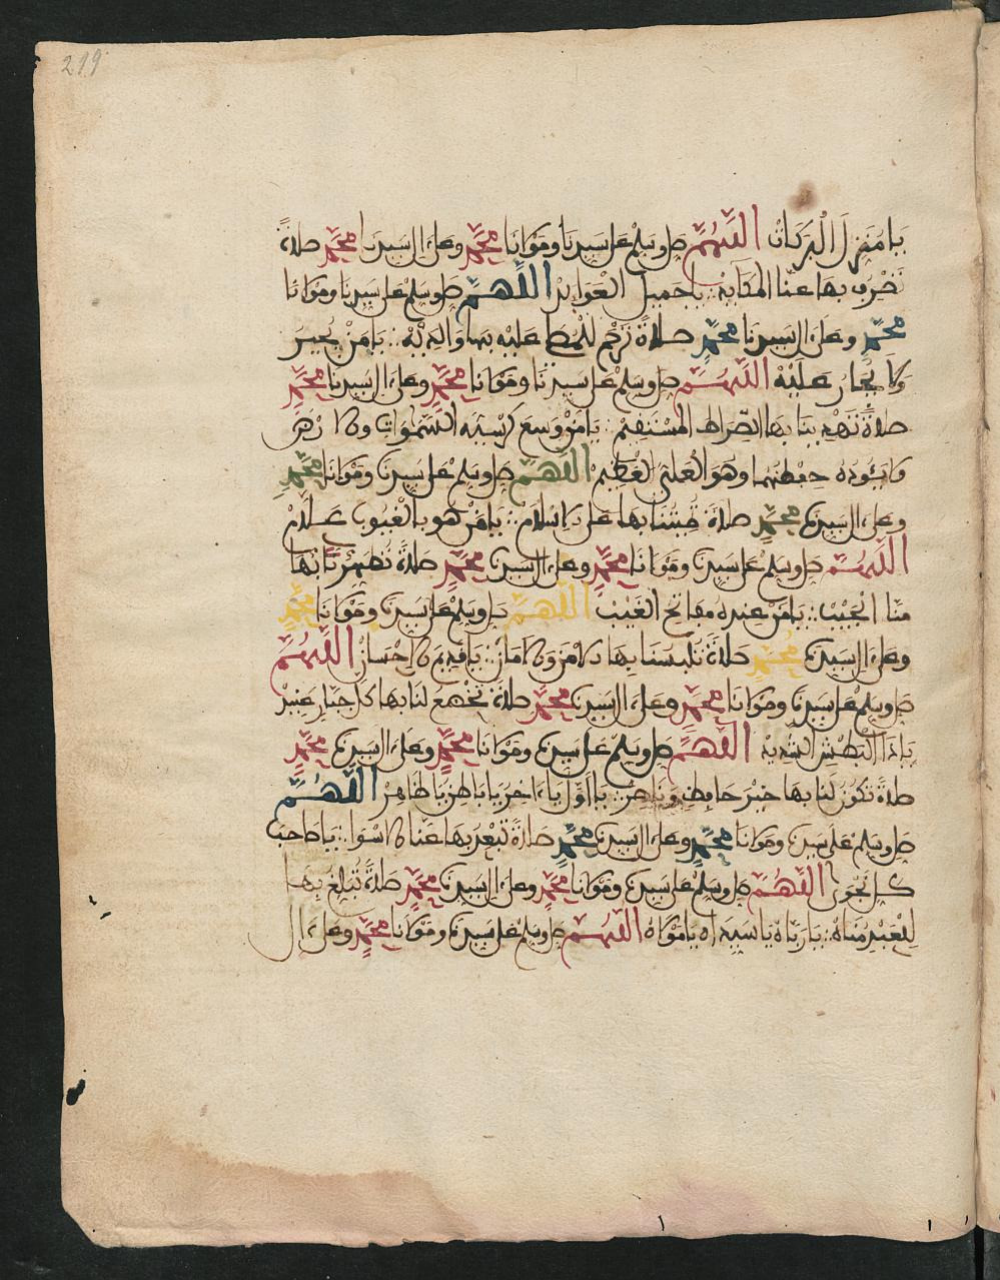 219
يا منزل البركات اللهم صل وسلم على سيدنا ومولانا محمد وعلى ال سيدنا محمد صلاة
تصرف بها عنا المكايد يا جميل العوايد اللهم صل وسلم على سيدنا ومولانا
محمد وعلى ال سيدنا محمد صلاة ترحم للمصلي عليه بها والديه يا من يجير
ولا يجار عليه اللهم صل وسلم على سيدنا ومولانا محمد وعلى ال سيدنا محمد
صلاة تهدينا بها الصراط المستقيم يا من وسع كرسيه السموات والارض
ولا يئوده حفظهما وهو العلي العظيم اللهم صل وسلم على سيدنا ومولانا محمد
وعلى ال سيدنا محمد صلاة تميتنا بها على الاسلام يا من هو بالغيوب علام
اللهم صل وسلم على سيدنا ومولانا محمد وعلى ال سيدنا محمد صلاة تطهرنا بها
منا الجيب يا من عنده مفاتح الغيب اللهم صل وسلم على سيدنا ومولانا محمد
وعلى ال سيدنا محمد صلاة تلبسنا بها الامن والامان يا قديم الاحسان اللهم
صل وسلم على سيدنا ومولانا محمد وعلى ال سيدنا محمد صلاة تخضع لنا بها كل جبار عنيد
يا ذا البطش الشديد اللهم صل وسلم على سيدنا ومولانا محمد وعلى ال سيدنا محمد
صلاة تكون لنا بها خير حافظ وناصر يا اول يا ءاخر يا باطن يا ظاهر اللهم
صل وسلم على سيدنا ومولانا محمد وعلى ال سيدنا محمد صلاة تبعد بها عنا الاسوا يا صاحب
كل نجوى اللهم صل وسلم على سيدنا ومولانا محمد وعلى ال سيدنا محمد صلاة تبلغ بها
للعبد مناه يا رباه يا سيداه يا مولاه اللهم صل وسلم على سيدنا ومولانا محمد وعلى ءال